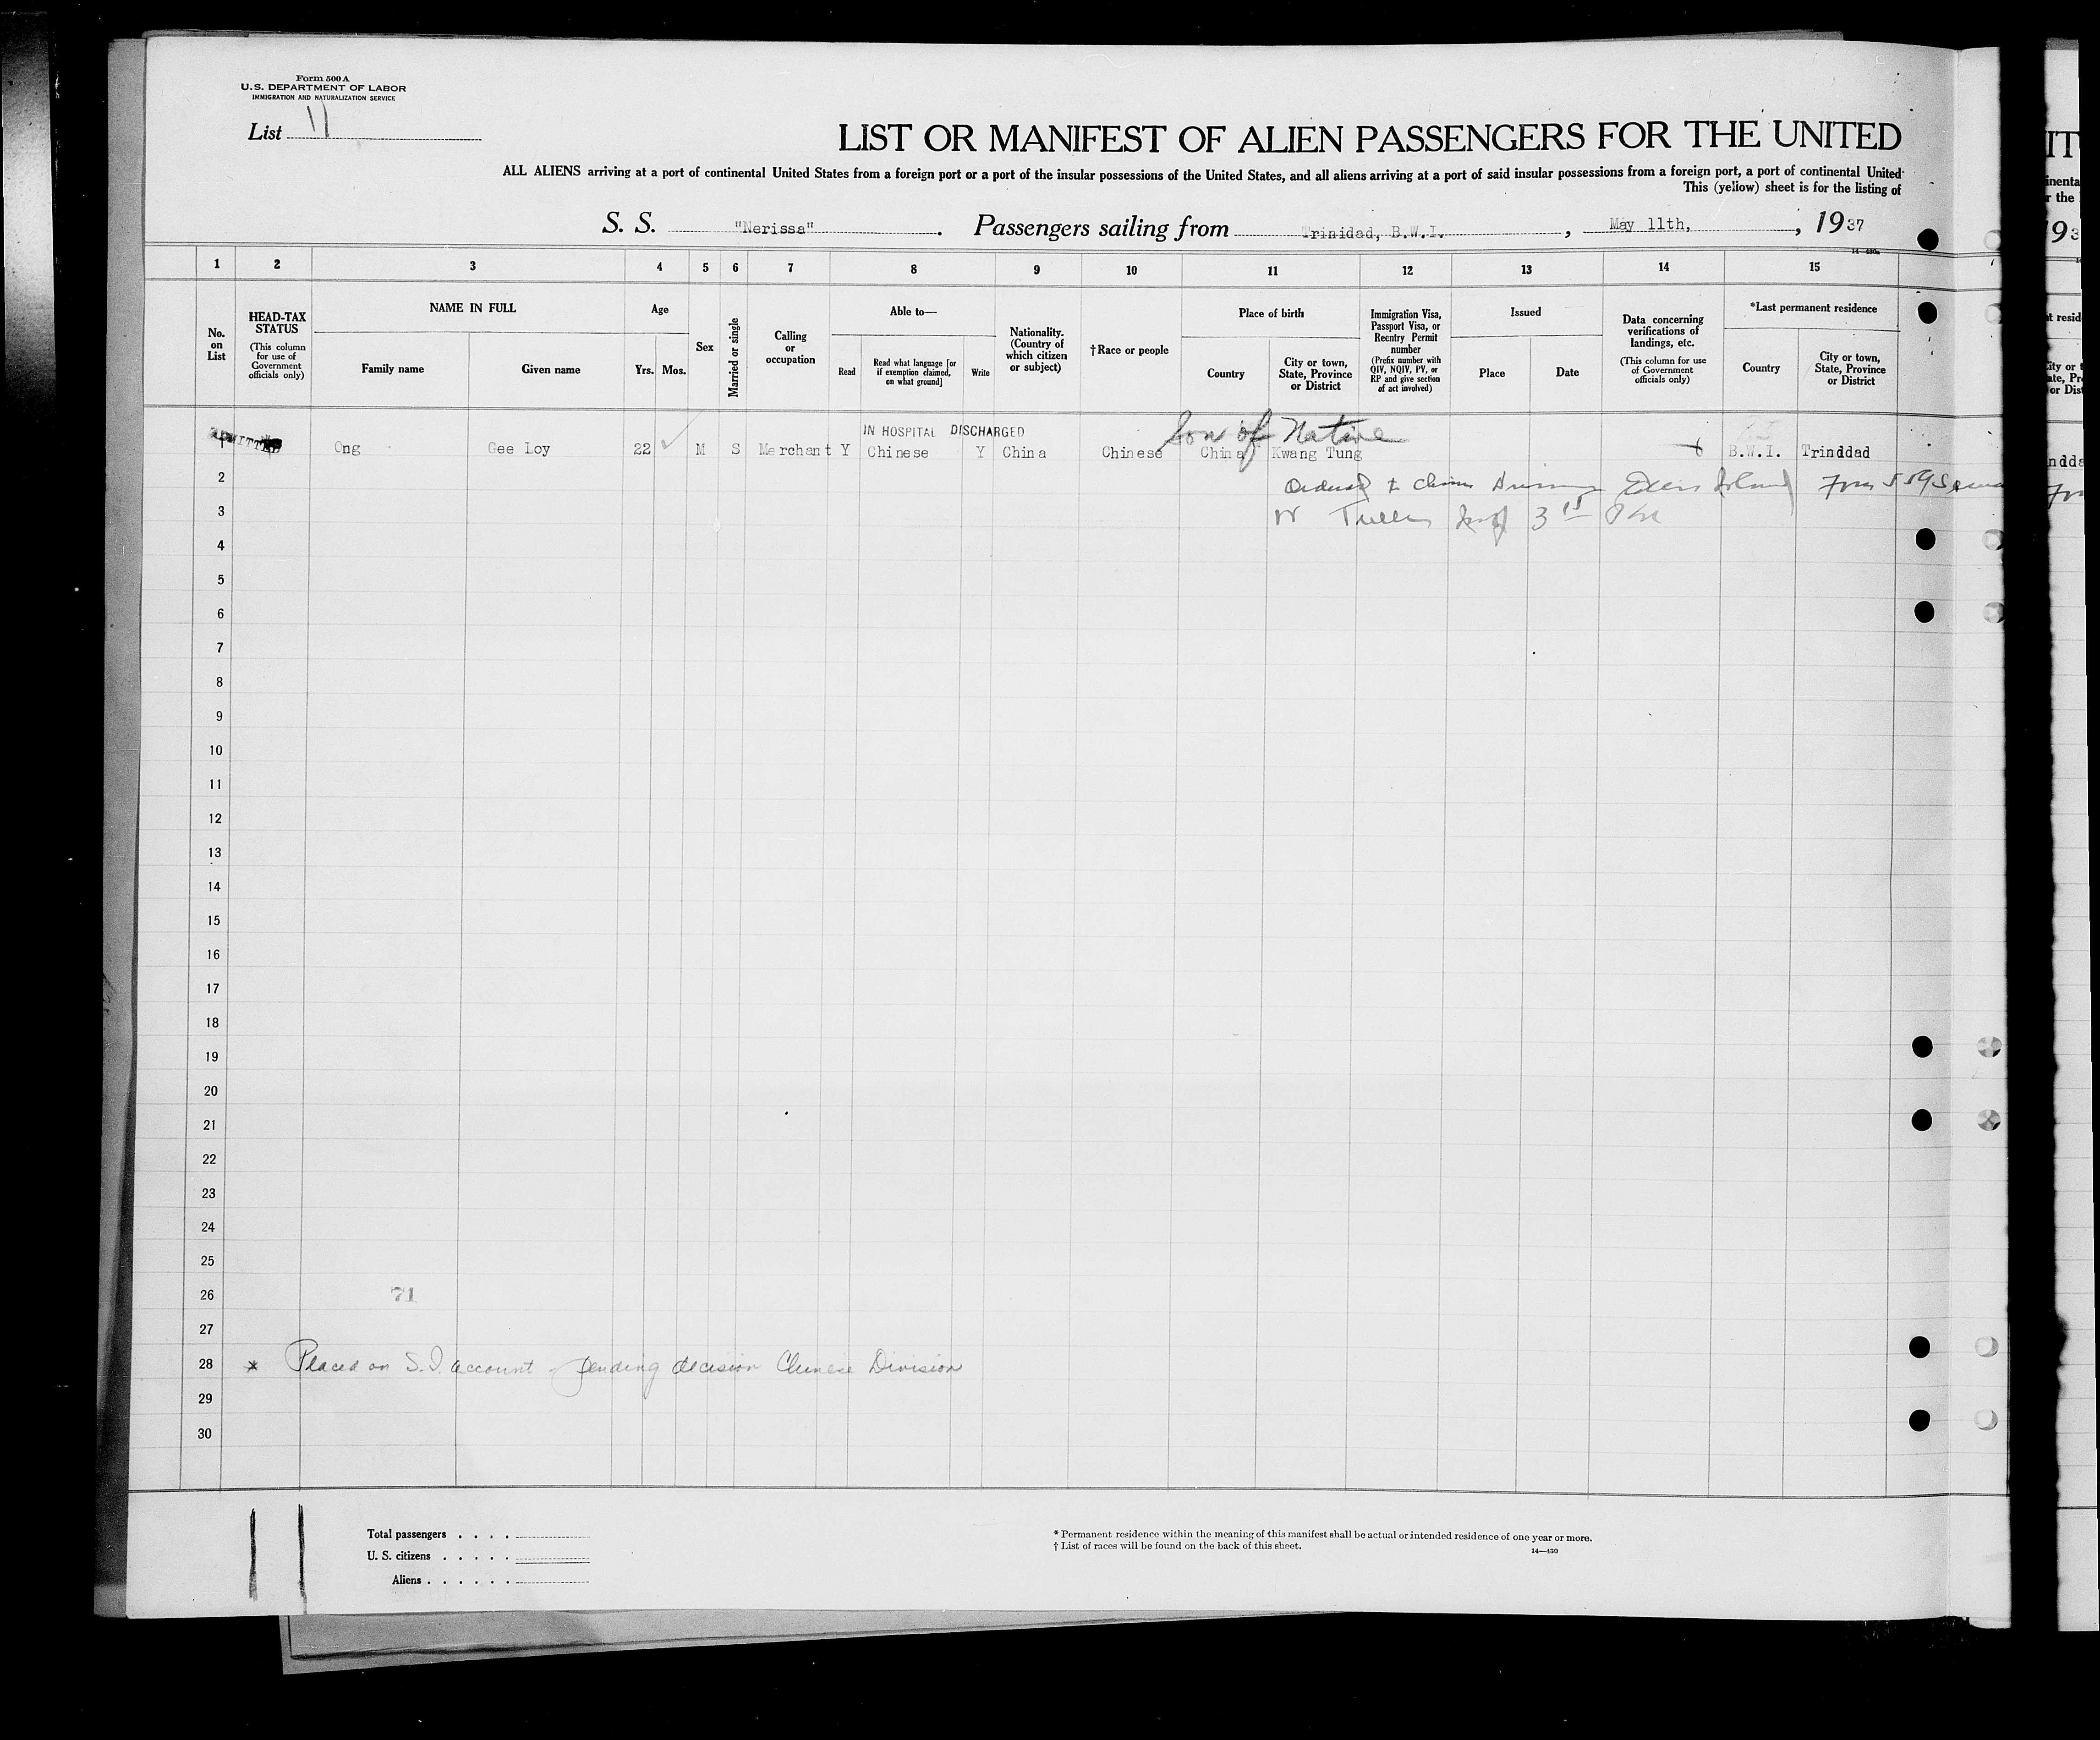 Form 500 A
U.S. DEPARTMENT OF LABOR
IMMIGRATION AND NATURALIZATION SERVICE
List 11
LIST OR MANIFEST OF ALIEN PASSENGERS FOR THE UNITED
ALL ALIENS arriving at a port of continental United States from a foreign port or a port of the insular possessions of the United States, and all aliens arriving at a port of said insular possessions from a foreign port, a port of continental United
This (yellow) sheet is for the listing of
S. S. "Nerissa". Passengers sailing from Trinidad, B.W.I., May 11th, , 1937
14-430a
1 2 3 4 5 6 7 8 9 10 11 12 13 14 15
No. on List
HEAD-TAX STATUS (This column for use of Government officials only)
NAME IN FULL
Family name
Given name
Age
Yrs. Mos.
Sex
Married or single
Calling or occupation
Able to—
Read
Read what language [or if exemption claimed, on what ground]
Write
Nationality. (Country of which citizen or subject)
†Race or people
Place of birth
Country
City or town, State, Province or District
Immigration Visa, Passport Visa, or Reentry Permit number (Prefix number with QIV, NQIV, PV, or RP and give section of act involved)
Issued
Place
Date
Data concerning verifications of landings, etc. (This column for use of Government officials only)
*Last permanent residence
Country
City or town, State, Province or District
IN HOSPITAL DISCHARGED
Son of Native
ADMITTED
1 Ong Gee Loy 22 M S Merchant Y Chinese Y China Chinese China Kwang Tung B.W.I. Trinddad
2 Ellis Island
3 3rd
4
5
6
7
8
9
10
11
12
13
14
15
16
17
18
19
20
21
22
23
24
25
26 71
27
28 * Placed on S.I. account - pending decision Chinese Division
29
30
11
Total passengers . . . .
U. S. citizens . . . . .
Aliens . . . . . .
* Permanent residence within the meaning of this manifest shall be actual or intended residence of one year or more.
† List of races will be found on the back of this sheet.
14—430